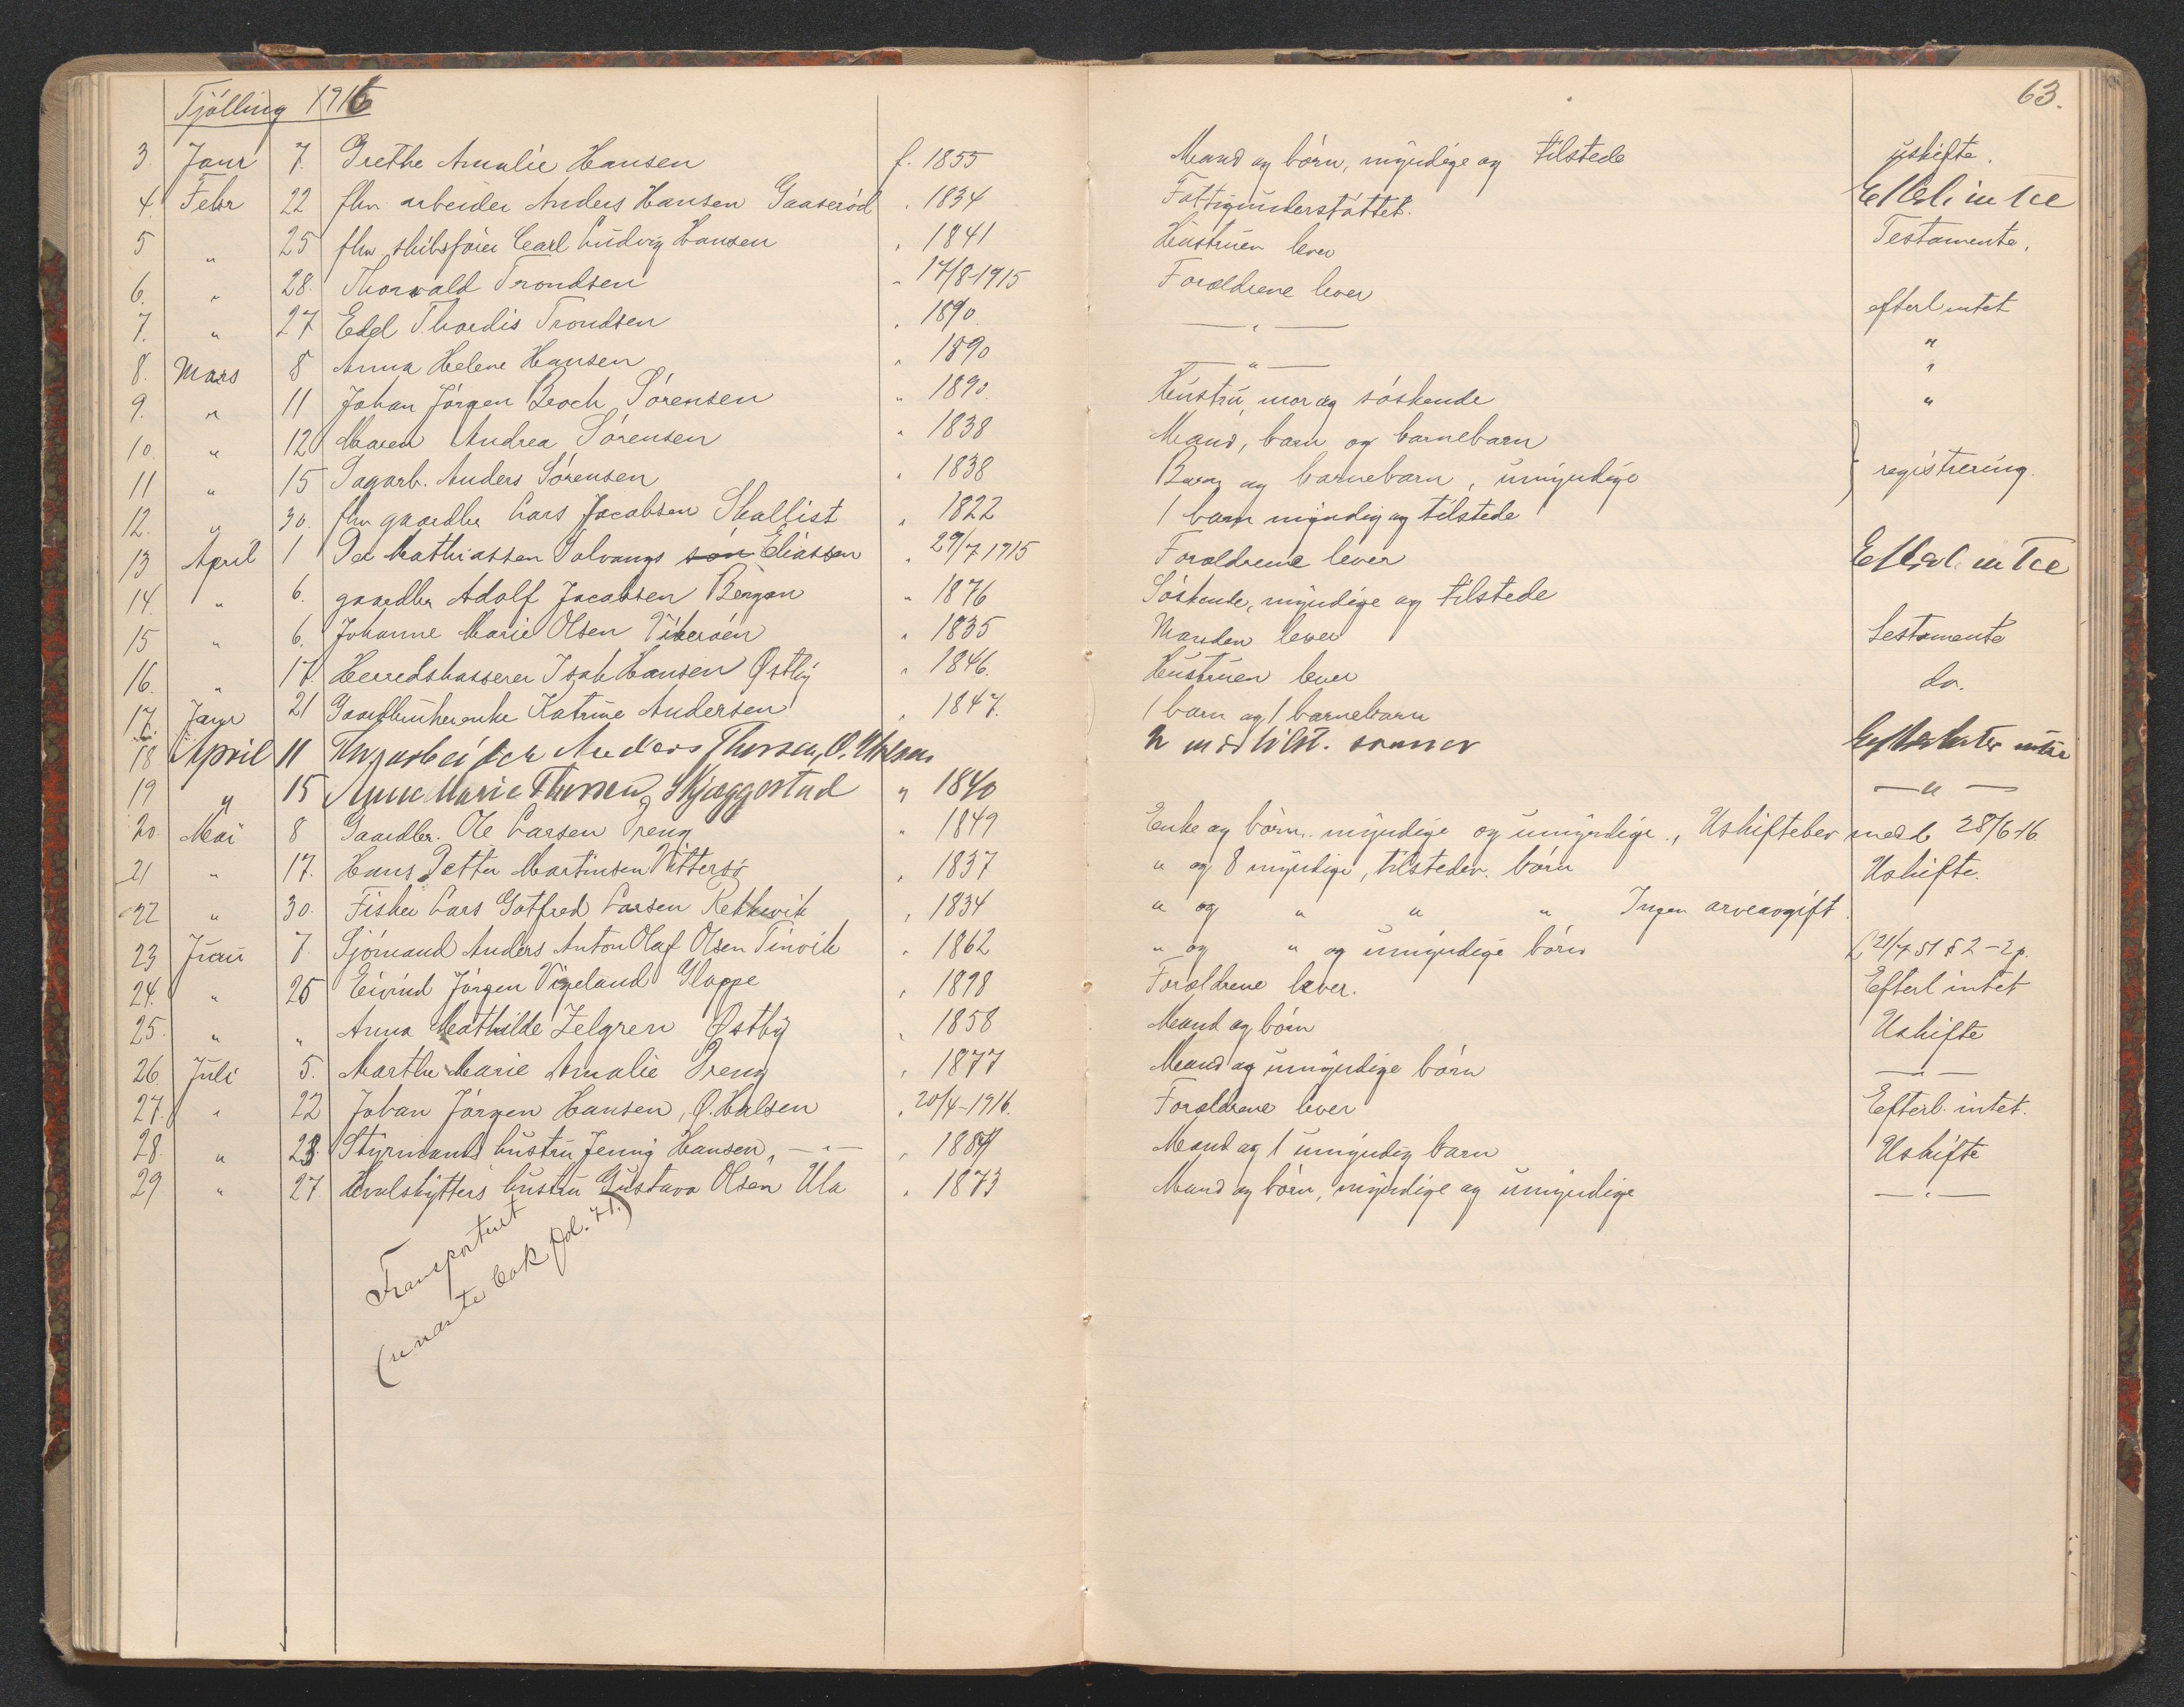 Tjølling 1916
63.
3. Janr 7. Grethe Amalie Hansen f. 1855 Mand og børn, myndige og tilstede uskifte.
4. Febr 22 fhv. arbeider Anders Hansen Gaaserød " 1834 Fattigunderstøttet. Efterl. intet
5 " 25 fhv. skibsfører Carl Ludvig Hansen " 1841 Hustruen lever Testamente.
6. " 28. Thorvald Trondsen " 17/8-1915 Forældrene lever
7. " 27 Edel Thordis Trondsen " 1890. — " — efterl intet
8. Mars 8 Anna Helene Hansen " 1890 — " — "
9. " 11 Johan Jørgen Broch Sørensen " 1890. Hustru, mor og søskende "
10. " 12 Maren Andrea Sørensen " 1838 Mand, barn og barnebarn
11 " 15 Dagarb. Anders Sørensen " 1838 Barn og barnebarn, umyndige } registrering.
12. " 30. fhv gaardbr Lars Jacobsen Skallist " 1822 1 barn myndig og tilstede
13 April 1 Per Mathiassen Solvangs søn Eliassen " 29/7 1915 Forældrene lever Efterl. intet
14. " 6. gaardbr Adolf Jacobsen Bergan " 1876 Søskende, myndige og tilstede
15 " 6. Johanne Marie Olsen Vikerøen " 1835 Manden lever Testamente
16. " 17. Herredskasserer Isak Hansen Østby " 1846. Hustruen lever do.
17. Janr 21 Gaardbrukerenke Katrine Andersen " 1847. 1 barn og 1 barnebarn
18 April 11 Anders Thorsen, Ø. Halsen 2 tilst. sønner Efterlater intet
19 " 15 Anne Marie Thorsen, Skjæggestad " 1840 — " —
20. Mai 8 Gaardbr. Ole Larsen Træng " 1849 Enke og børn. myndige og umyndige., Uskiftebev medd. 28/6-16.
21 " 17. Hans Petter Martinsen Vittersø " 1837 " og 8 myndige, tilstedev. børn Uskifte.
22 " 30. Fisker Lars Gotfred Larsen Rekkevik " 1834 " og " " " Ingen arveavgift.
23 Juni 7. Sjømand Anders Anton Olaf Olsen Tinvik " 1862 " og " og umyndige børn L 21/7 51 § 2 - 2 p.
24. " 25 Eivind Jørgen Vigeland Gloppe " 1898 Forældrene lever. Efterl intet
25. " " Anna Mathilde Zelgren Østby " 1858 Mand og børn Uskifte
26 Juli 5. Marthe Marie Amalie Træng " 1877 Mand og umyndige børn — " —
27. " 22 Johan Jørgen Hansen, Ø. Halsen " 20/4-1916. Forældrene lever Efterl. intet.
28. " 23. Styrmands hustru Jenny Hansen, — " — " 1884 Mand og 1 umyndig barn Uskifte
29 " 27 Hvalskytters hustru Gustava Olsen Ula " 1873 Mand og børn, myndige og umyndige — " —
Transportert
bok fol. 71.)